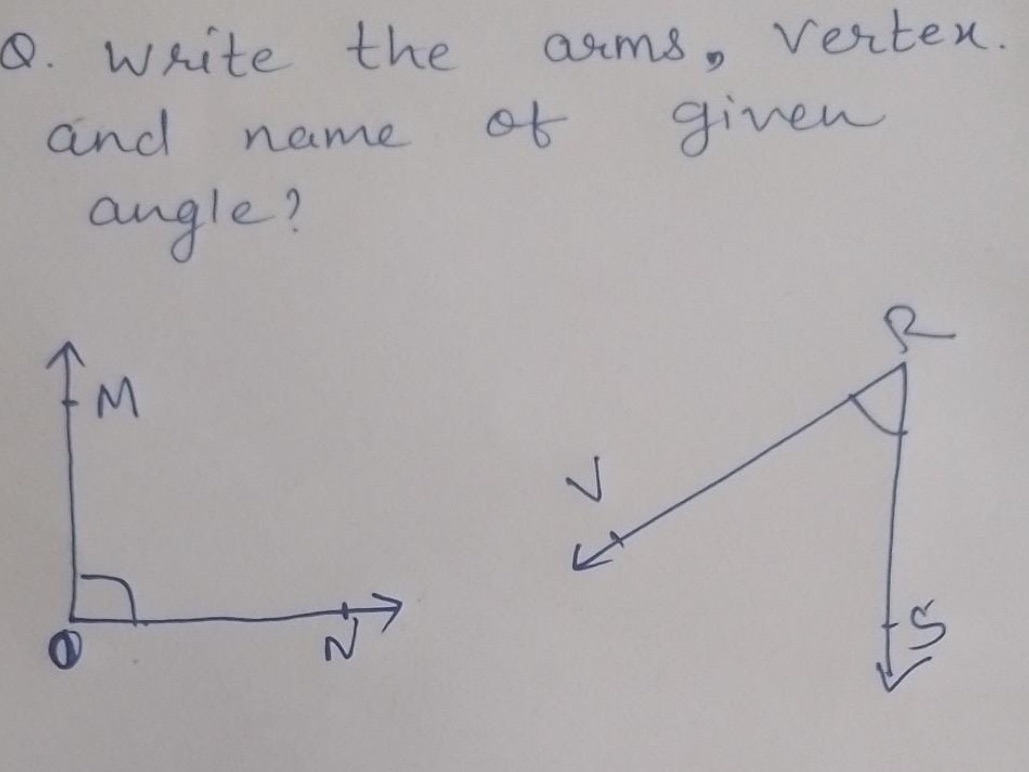 Q. Write the arms, Vertex.
and name of given
angle?
M
O
N
R
V
S